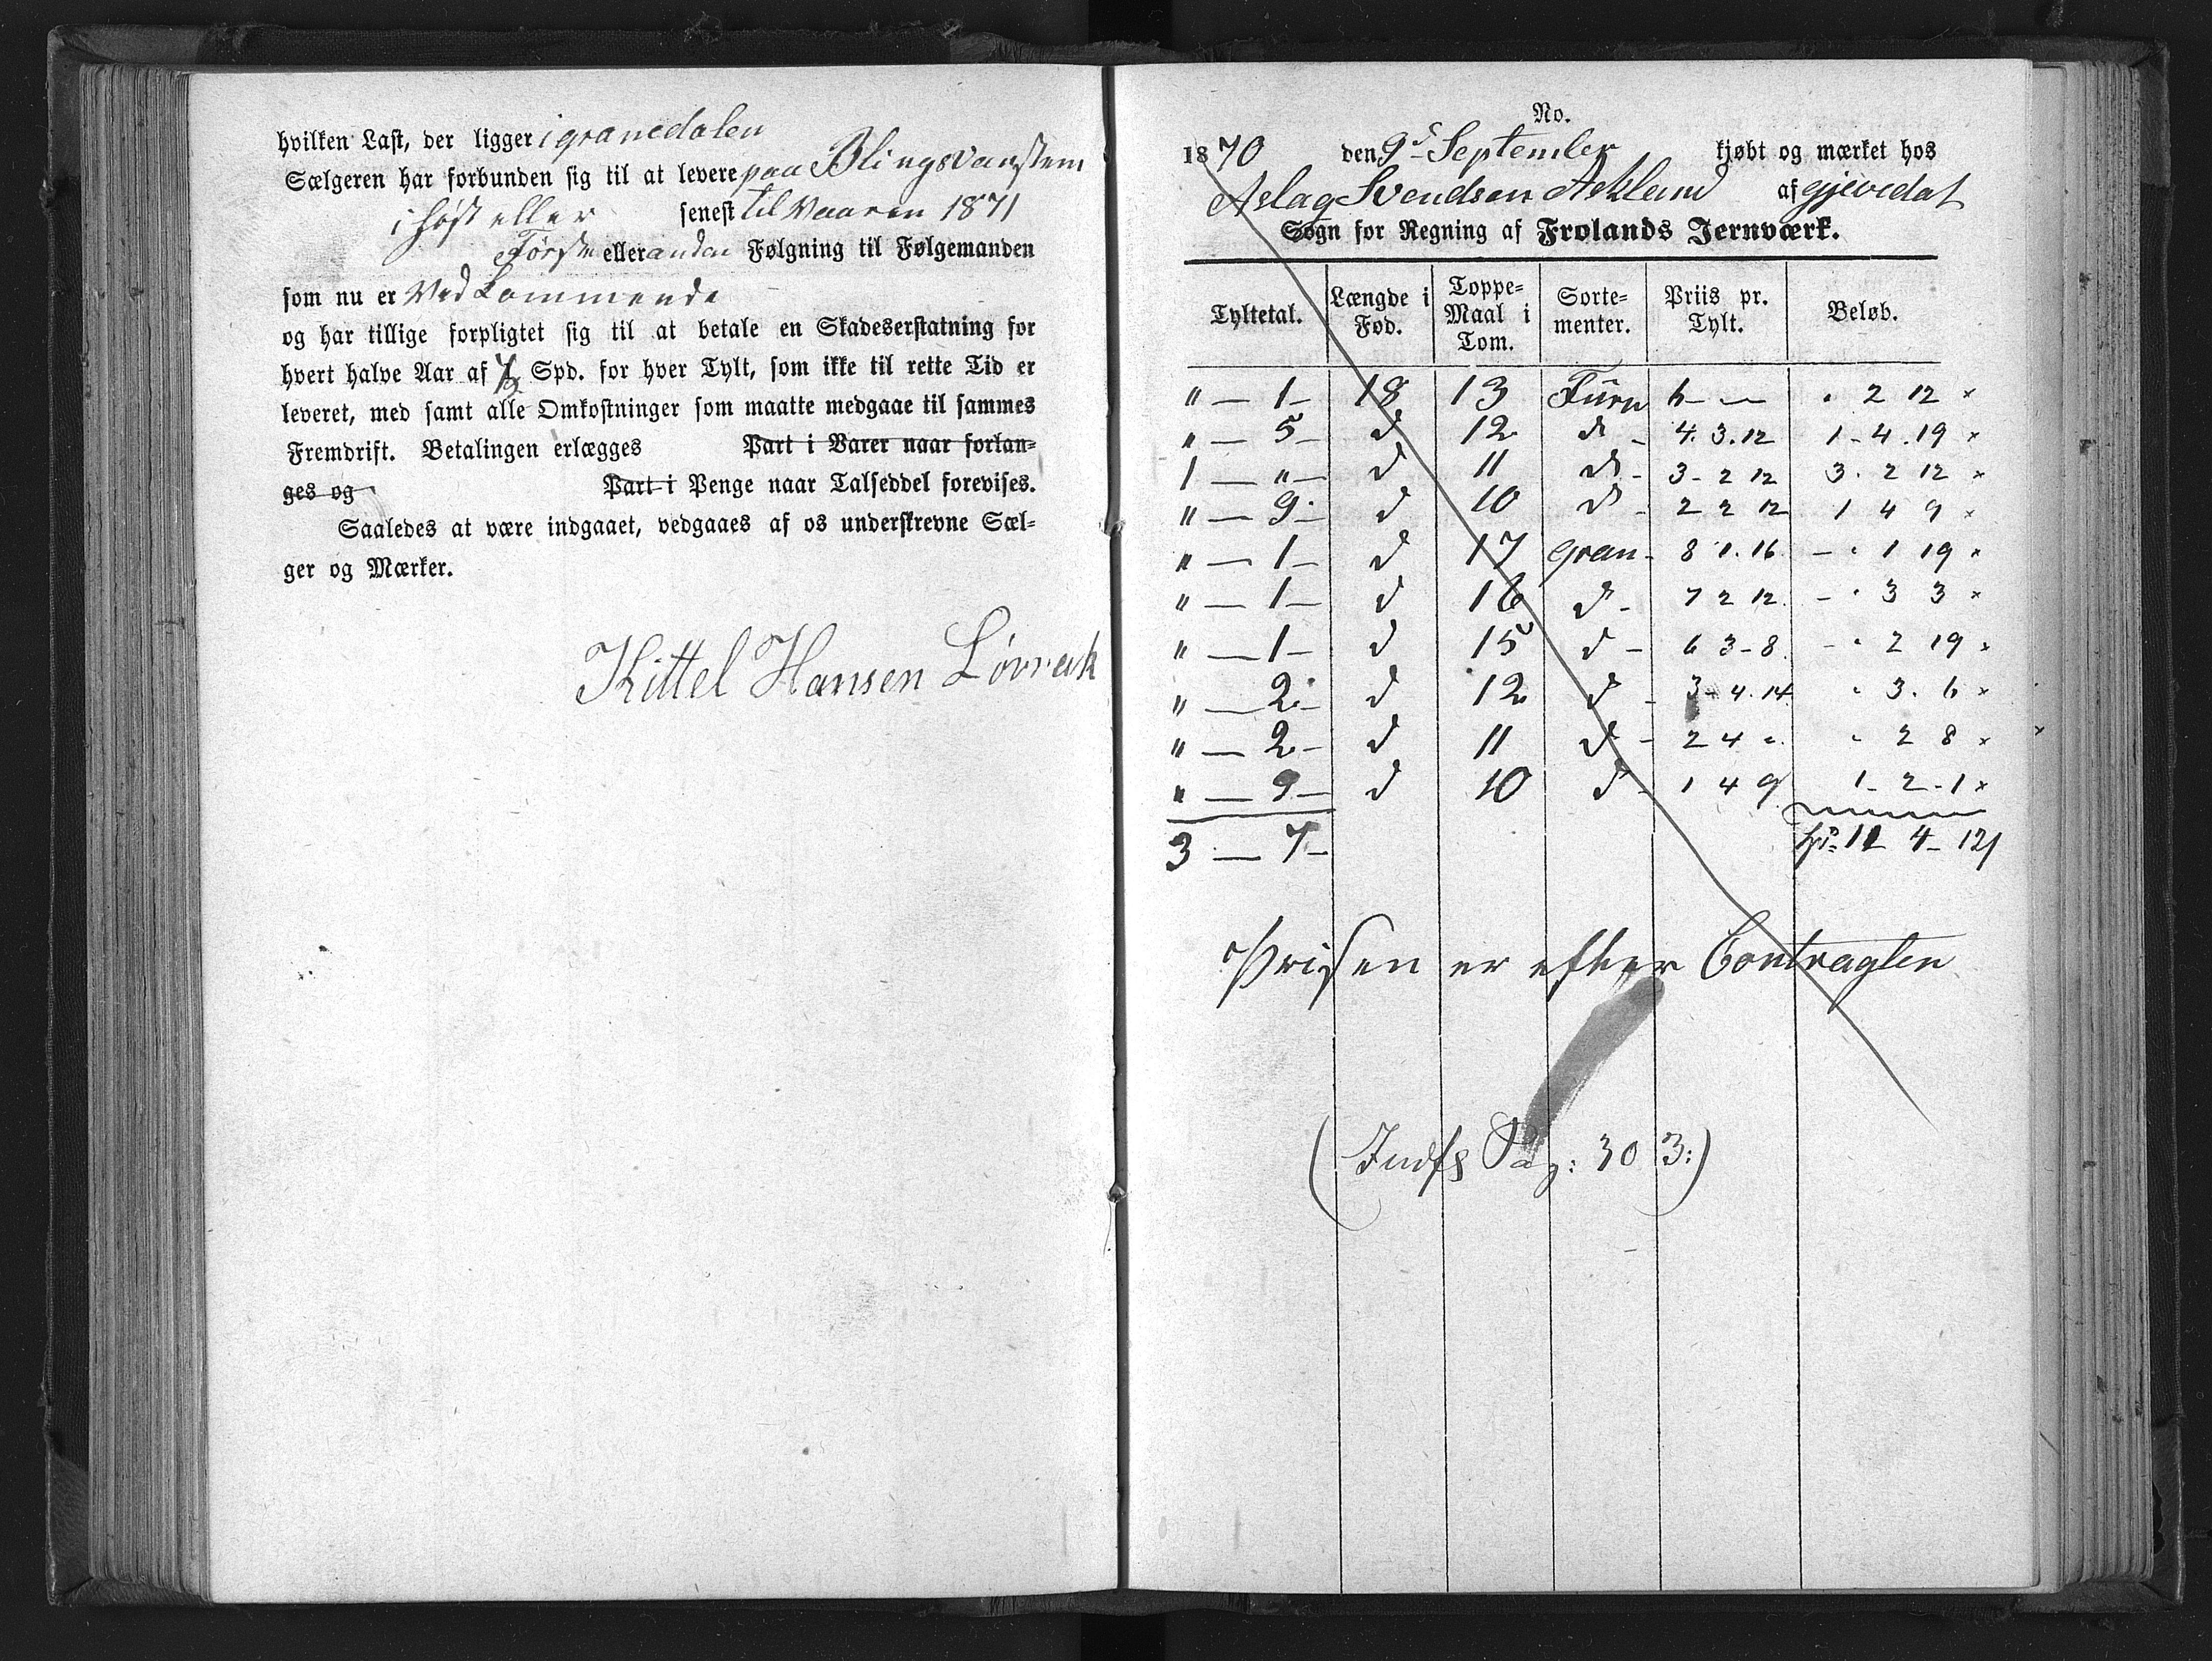 hvilken Last, der ligger i granedalen
Sælgeren har forbunden sig til at levere paa Blingsvanstem
i høst eller senest til Vaaren 1871
Første eller anden Følgning til Følgemanden
som nu er Ved Kommende
og har tillige forpligtet sig til at betale en Skadeserstatning for
hvert halve Aar af 1/2 Spd. for hver Tylt, som ikke til rette Tid er
leveret, med samt alle Omkostninger som maatte medgaae til sammes
Fremdrift. Betalingen erlægges Part i Varer naar forlan-
ges og Part i Penge naar Talseddel forevises.
Saaledes at være indgaaet, vedgaaes af os underskrevne Sæl-
ger og Mærker.
Kittel Hansen Løvraek
No.
1870 den 9d September kjøbt og mærket hos
Aslag Svendsen Askland af gjevedal
Sogn for Regning af Frolands Jernværk.
Tyltetal. Længde i Fod. Toppe-Maal i Tom. Sorte-menter. Priis pr. Tylt. Beløb.
" — 1 — 18 13 Furu 6 - — . 2 12 ×
" — 5 — d 12 d - 4. 3. 12 1 - 4. 19 ×
1 — " — d 11 d - 3 - 2 12 3. 2 12 ×
" — 9 — d 10 d - 2 2 12 1 4 9 ×
" — 1 — d 17 gran - 8 1. 16 - . 1 19 ×
" — 1 — d 16 d - 7 2 12. - . 3 3 ×
" — 1 — d 15 d - 6 3 - 8. - . 2 19 ×
" — 2 - d 12 d - 3 - 4. 14 . 3. 6 ×
" — 2 - d 11 d - 2 4 . . 2 8 ×
" — 9 — d 10 d - 1 4 9 1 - 2 - 1 ×
3 — 7 — 11 - 4 - 12
Prisen er efter Contragten
(Indfs Pag: 303:)